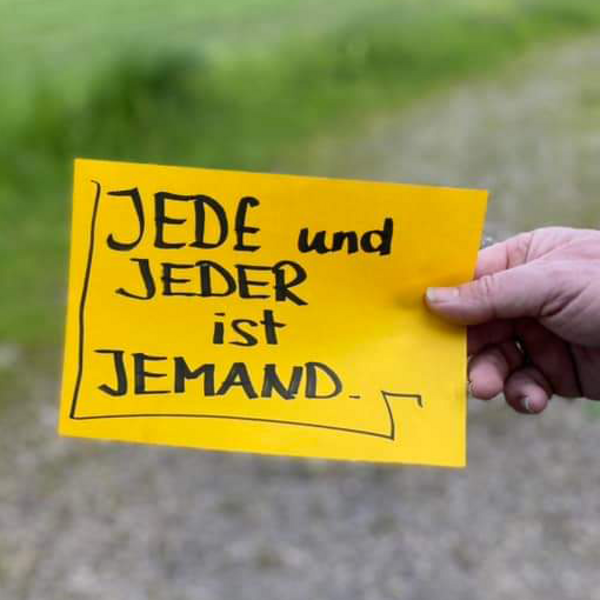 JEDE und
JEDER
ist
JEMAND.